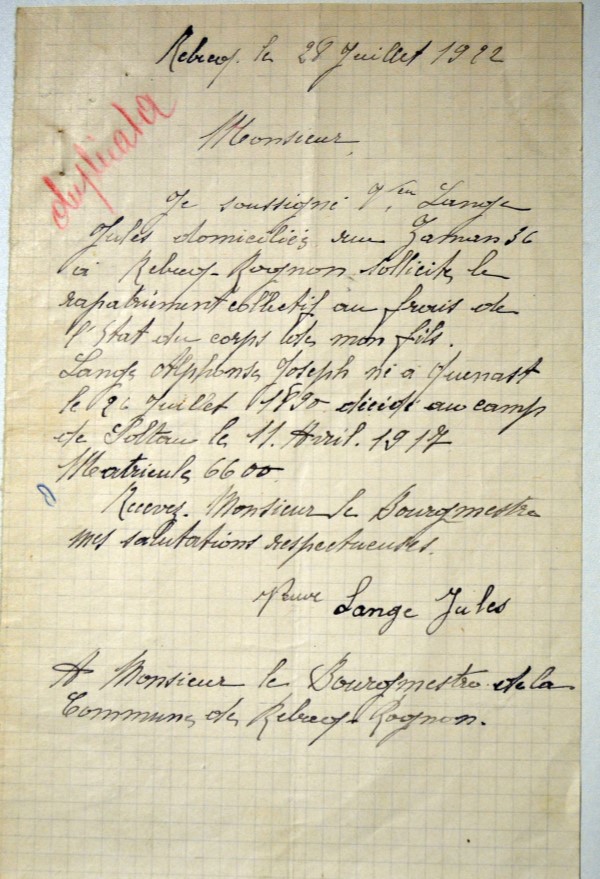 Rebecq. le 28 Juillet 1922
duplicata
Monsieur
Je soussigné Vve Lange
Jules domiciliés rue Zaman 36
à Rebecq-Rognon sollicite le
rapatriement collectif au frais de
l'Etat du corps de mon fils.
Lange Alphonse Joseph né à Quenast
le 26 Juillet 1890 décidé au camp
de Soltau le 11. Avril. 1917
Matricule 6600
Recevez. Monsieur le Bourgmestre
mes salutations respectueuses.
Veuve Lange Jules
A Monsieur le Bourgmestre de la
Commune de Rebecq-Rognon.